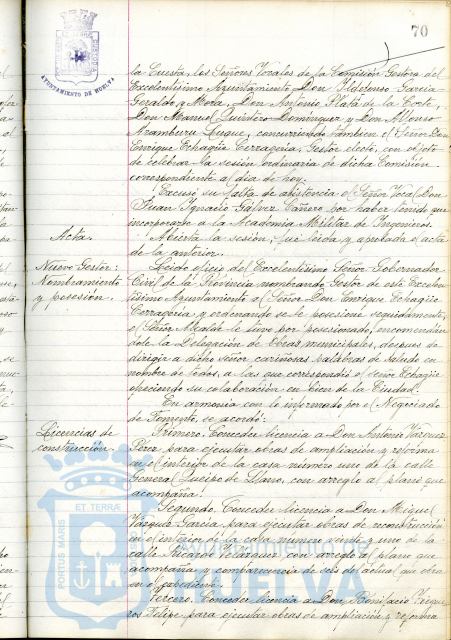 70
AYUNTAMIENTO DE HUELVA
la Cuesta, los Señores Vocales de la Comisión Gestora del
Excelentísimo Ayuntamiento Don Ildefonso García
Geraldo y Mora, Don Antonio Plata de la Corte,
Don Manuel Quintero Domínguez y Don Alfonso
Aramburu Luque, concurriendo tambien el Señor Don
Enrique Echagüe Cerragería, Gestor electo, con objeto
de celebrar la sesión ordinaria de dicha Comisión
correspondiente al día de hoy.
Excusó su falta de asistencia el Señor Vocal Don
Juan Ignacio Gálvez Cañero por haber tenido que
incorporarse a la Academia Militar de Ingenieros.
Acta.
Abierta la sesión, fue leída y aprobada el acta
de la anterior.
Nuevo Gestor:
Nombramiento
y posesión.
Leído oficio del Excelentísimo Señor Gobernador
Civil de la Provincia nombrando Gestor de este Excelen-
tísimo Ayuntamiento al Señor Don Enrique Echagüe
Cerragería y ordenando se le posesione seguidamente,
el Señor Alcalde le tuvo por posesionado, encomendán-
dole la Delegación de Obras municipales, despues de
dirigir a dicho Señor cariñosas palabras de saludo en
nombre de todos, a las que correspondió el señor Echagüe
ofreciendo su colaboración en bien de la Ciudad.
En armonía con lo informado por el Negociado
de Fomento, se acordó:
Licencias de
construcción.
Primero. Conceder licencia a Don Antonio Vázquez
Pérez para ejecutar obras de ampliación y reforma
en el interior de la casa número uno de la calle
General Queipo de Llano, con arreglo al plano que
acompaña.
Segundo. Conceder licencia a Don Miguel
Vázquez García para ejecutar obras de reconstrucción
en el interior de la casa número veinte y uno de la
calle Ricardo Velázquez con arreglo al plano que
acompaña y comparecencia de seis del actual que obra
en el expediente.
Tercero. Conceder licencia a Don Bonifacio
Felipe para ejecutar obras de ampliación y reforma
PORTUS MARIS ET TERRÆ
HUELVA